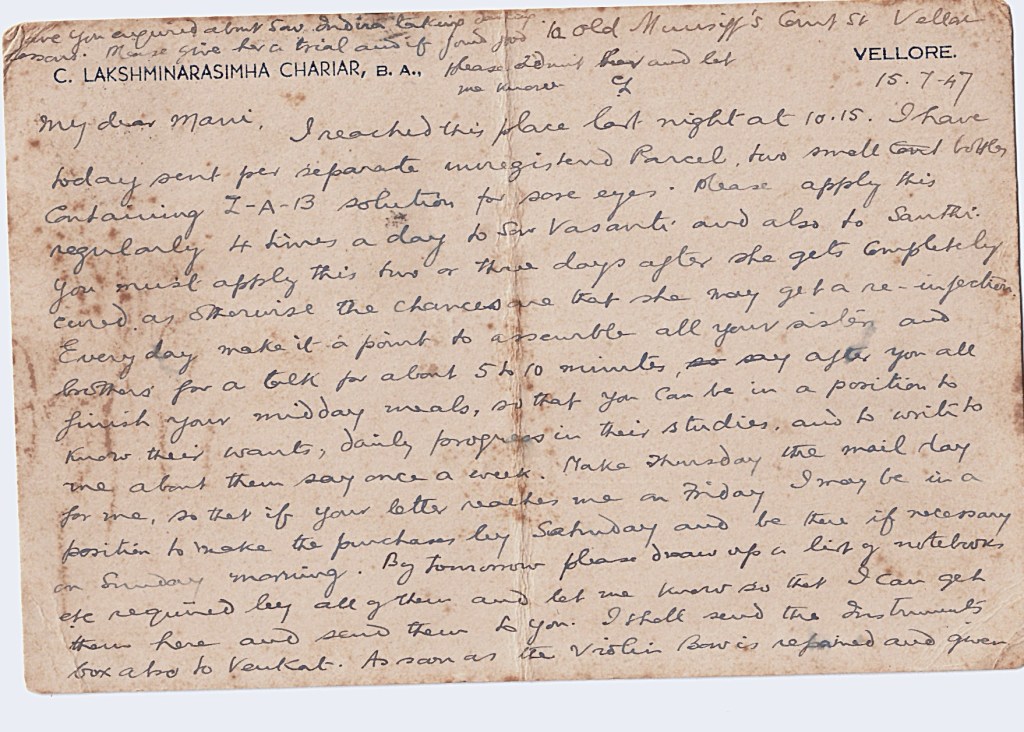 Have you enquired about Sow. Indira taking dancing
lessons. Please give her a trial and if found good
please admit her and let
me know CL
12 old Munsiff's Court St Vellore
C. LAKSHMINARASIMHA CHARIAR, B. A.,
VELLORE.
15.7-47
My dear Mani,
I reached this place last night at 10.15. I have
today sent per separate unregisterd Parcel, two small bottles
Containing Z-A-B solution for sore eyes. Please apply this
regularly 4 times a day to Sow Vasanti and also to Santhi.
You must apply this two or three days after she gets Completely
cured as otherwise the chances are that she may get a re-infection.
Every day make it a point to assemble all your sisters and
brothers for a talk for about 5 to 10 minutes, say after you all
finish your midday meals, so that you can be in a position to
know their wants, daily progress in their studies, and to write to
me about them say once a week. Make Thursday the mail day
for me, so that if your letter reaches me on Friday I may be in a
position to make the purchases by Saturday and be there if necessary
on Sunday morning. By tomorrow please draw up a list of notebooks
etc required by all of them and let me know so that I can get
them here and send them to you. I shall send the Instruments
box also to Venkat. As soon as the Violin Bow is repaired and given